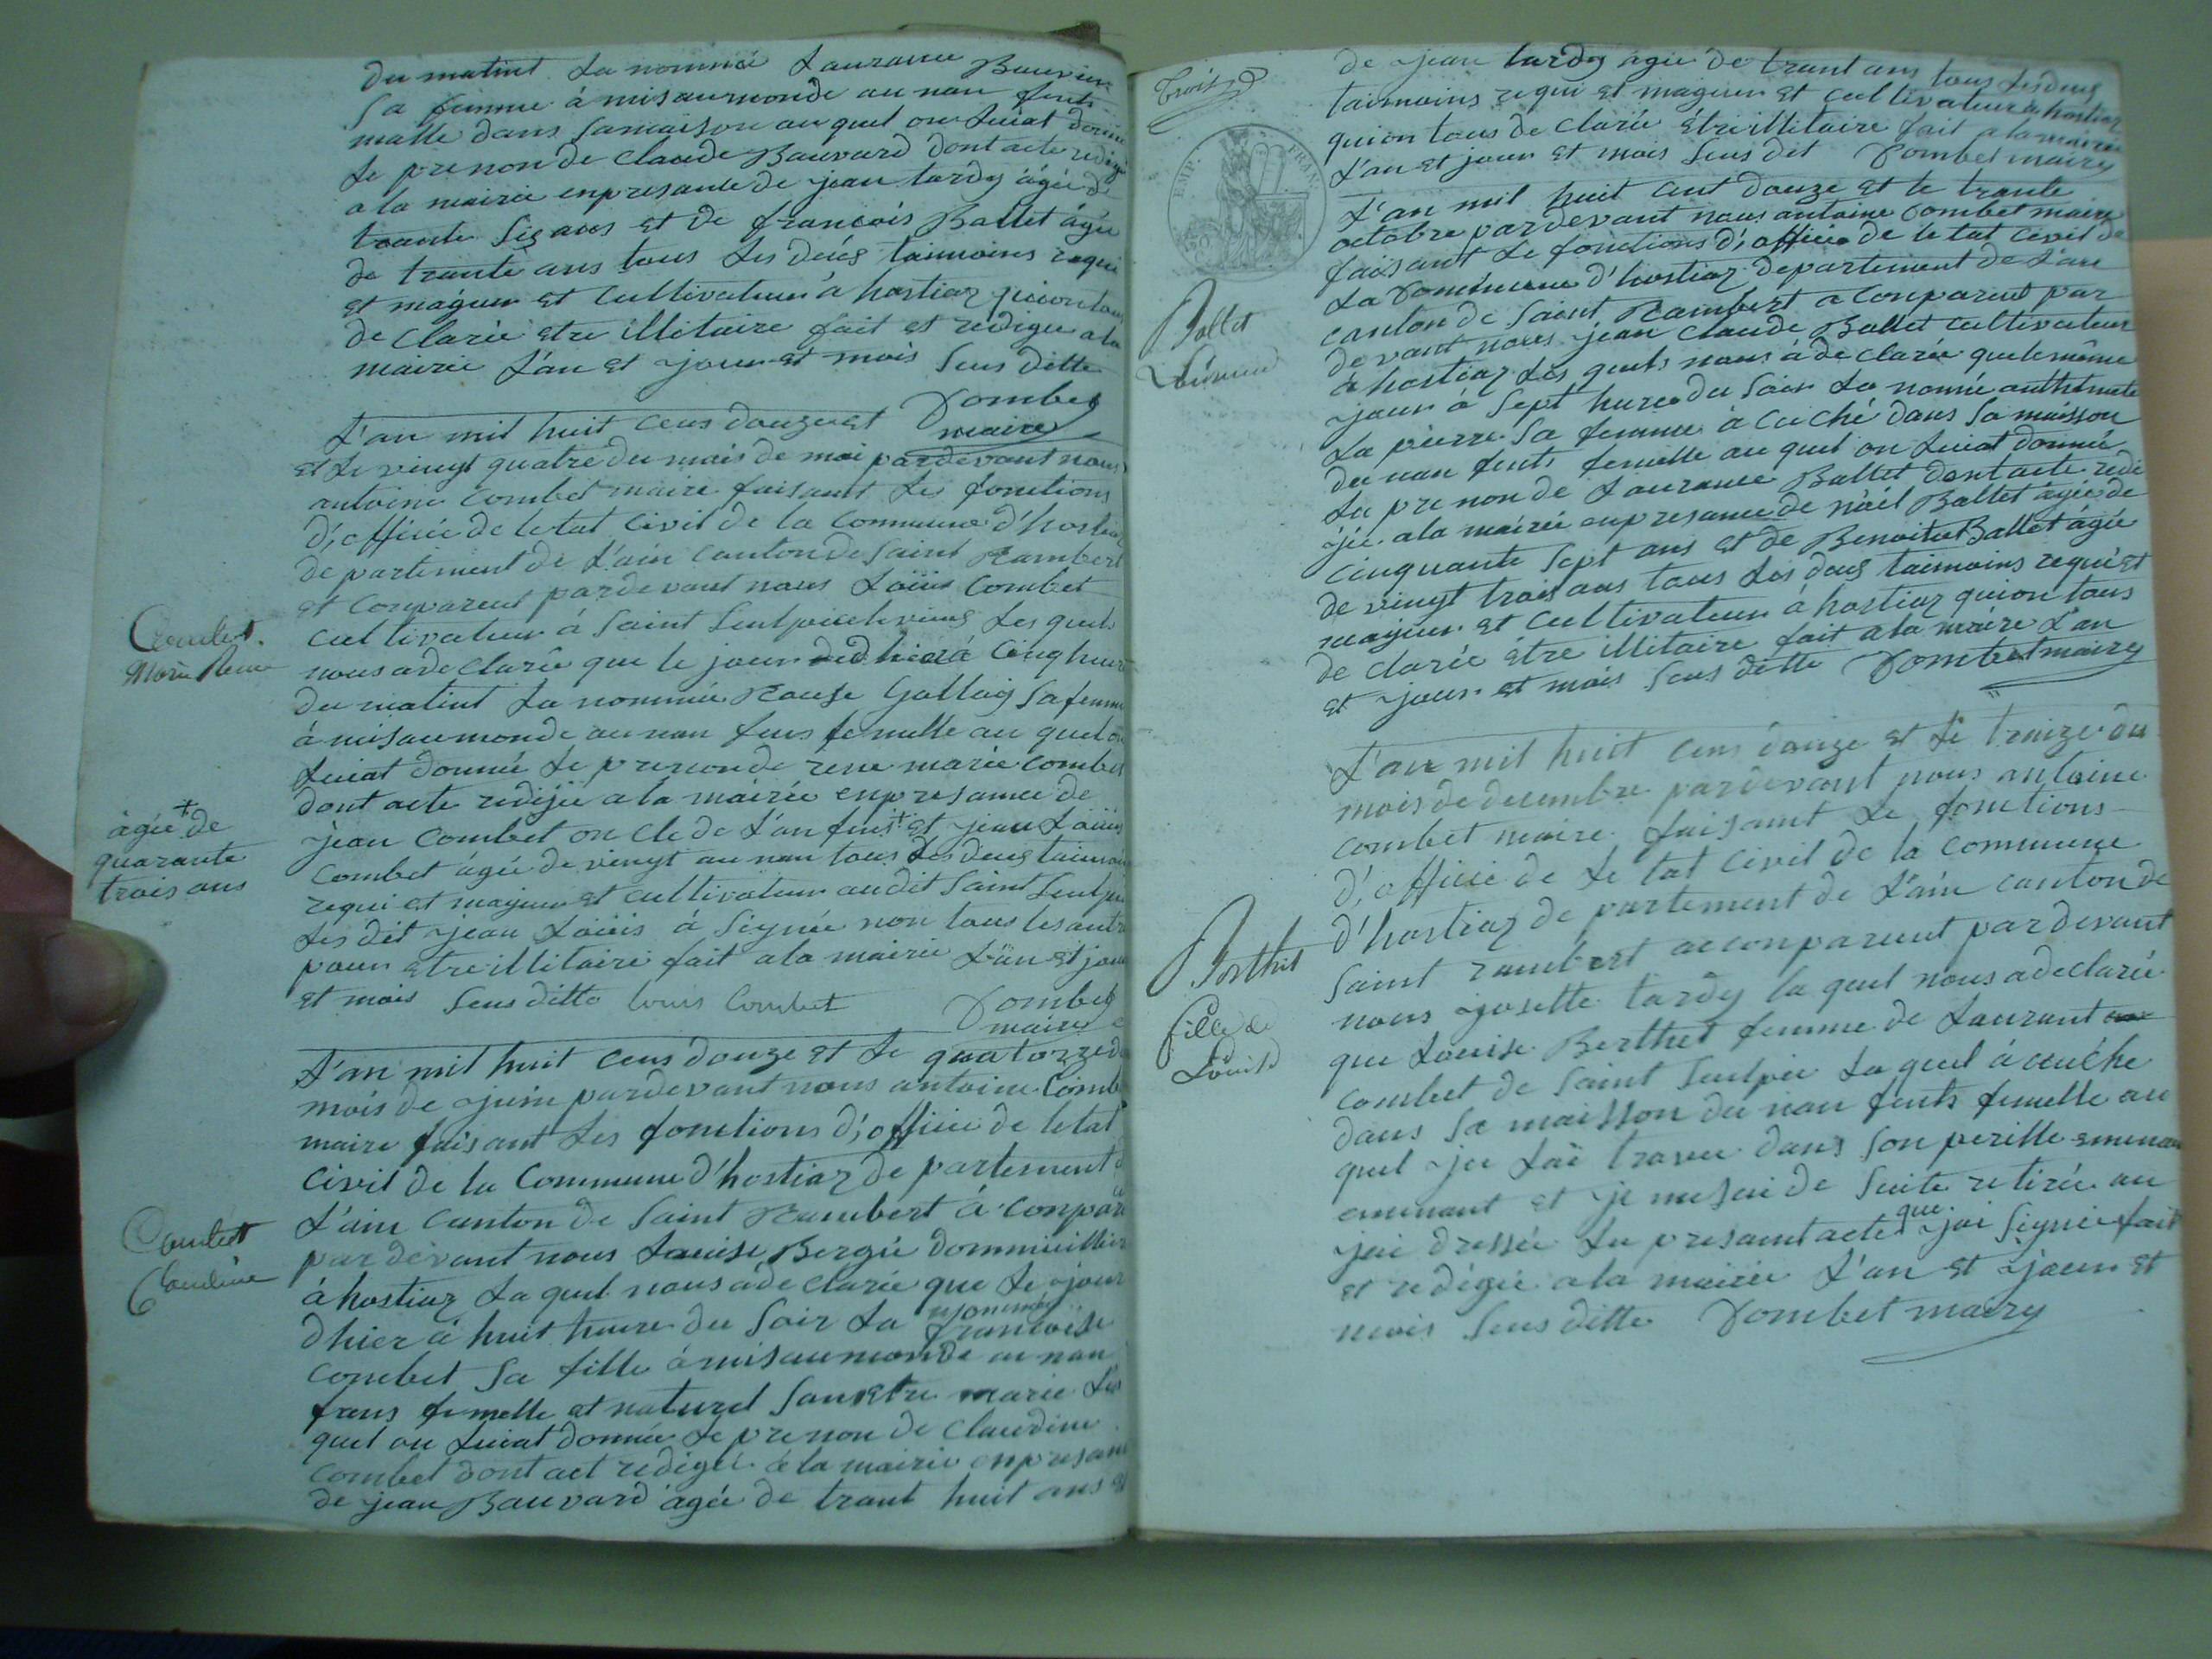 du matint la nommée Laurance Bauvier
sa femme à mis au monde au nan fents
malle dans sa maison au quel on luiat donné
le prenon de Claude Bauvard dont acte redigé
a la mairie en presance de jean tardy agée de
trante sis ans et de francois Ballet agée
de trante ans tous les deus taimoins requi
et mageur et cultivateur à hostiaz quion tous
de clarée etre illitaire fait et redigée a la
mairie L'an et jour et mois sus ditte
Combet
maire
L'an mil huit cens douze et
et le vingt quatre du mois de mai pardevant nous
antoine Combet maire faisant les fonctions
d'officié de letat civil de la Commune d'hostiaz
departement de L'ain canton de Saint Rambert
et Conparent pardevant nous Loüis Combet
cultivateur à Saint Seulpice le vieus les quels
nous a de clarée que le jour d'hier à cinq heure
du matint la nommée Rause Gallay sa femme
à mis au monde au nan fens femelle au quel on
luiat donnée le prenon de rene marie Combet
dont acte redijée a la mairée en presance de
jean Combet oncle de L'an fens + et jean Loüis
Combet agée de vingt au nan tous les deus taimoins
requi et majeur et cultivateur audit Saint Seulpi
les dit jean Loüis à Signée non tous les autre
pour etre illitaire fait a la mairie L'an et jour
et mois sus ditte Louis Combet
Combet
maire
Combet
Marie Rene
agée + de
quarante
trois ans
L'an mil huit cens douze et le quatorze du
mois de juin pardevant nous antoine Comb
maire faisant les fonctions d'officié de letat
civil de la Commune d'hostiaz departement d
L'ain canton de Saint Rambert à conpar
par devant nous Louise Bergée
à hostiaz la quel nous à de clarée que le jour
d'hier à huit heure du soir la nommée
francoise
Combet sa fille à mis au monde au nan
fans femelle et naturel sans etre marie
quel on luiat donnée le prenon de Claudine
Combet dont act redigée a la mairie en presan
de jean Bauvard agée de trant huit ans et
Combet
Claudine
de jean tardy agée de trant ans tous les deus
taimoins requi et mageur et cultivateur a hostiaz
quion tous de clarée etre illitaire fait a la mairie
L'an et jour et mois sus dit Combet maire
Trois
EMP. FRAN.
L'an mil huit cent douze et le trante
octobre pardevant nous antoine Combet maire
faisant le fonctions d'officié de letat civil de
La Commune d'hostiaz departement de L'ain
canton de Saint Rambert a Conparent par
devant nous jean Claude Ballet cultivateur
a hostiaz les quels nous à de clarée que le même
jour à sept hure du soir la nomée anthelmete
La pierre sa femme à cuché dans sa maisson
du nan fents femelle au quel on luiat donnée
Le prenon de Laurance Ballet dont acte redi
jée a la mairée en presance de Ballet agée de
cinquante sept ans et de Benoitat Ballet agée
de vingt trois ans tous les deus taimoins requi et
majeur et cultivateur à hostiaz quion tous
de clarée être illitaire fait a la maire L'an
et jour et mois sus ditte Combet maire
Ballet
L'an mil huit cens douze et le traize du
mois de decembre pardevant nous antoine
combet maire faisant le fonctions
d'officié de le tat civil de la commune
d'hostiaz departement de L'ain canton de
Saint rambert a conparent pardevant
nous josette tardy la quel nous a declarée
que Louise Berthet femme de Laurant
combet de Saint Seulpice la quel à cuché
dans sa maisson du nan fents femelle au
quel je Lai trovee dans son perille
emenant et je me sui de suite retirée au
jai dressée Le presant acte que jai signée fait
et redigée a la mairie L'an et jour et
mois sus ditte Combet maire
Berthet
fille de
Louise